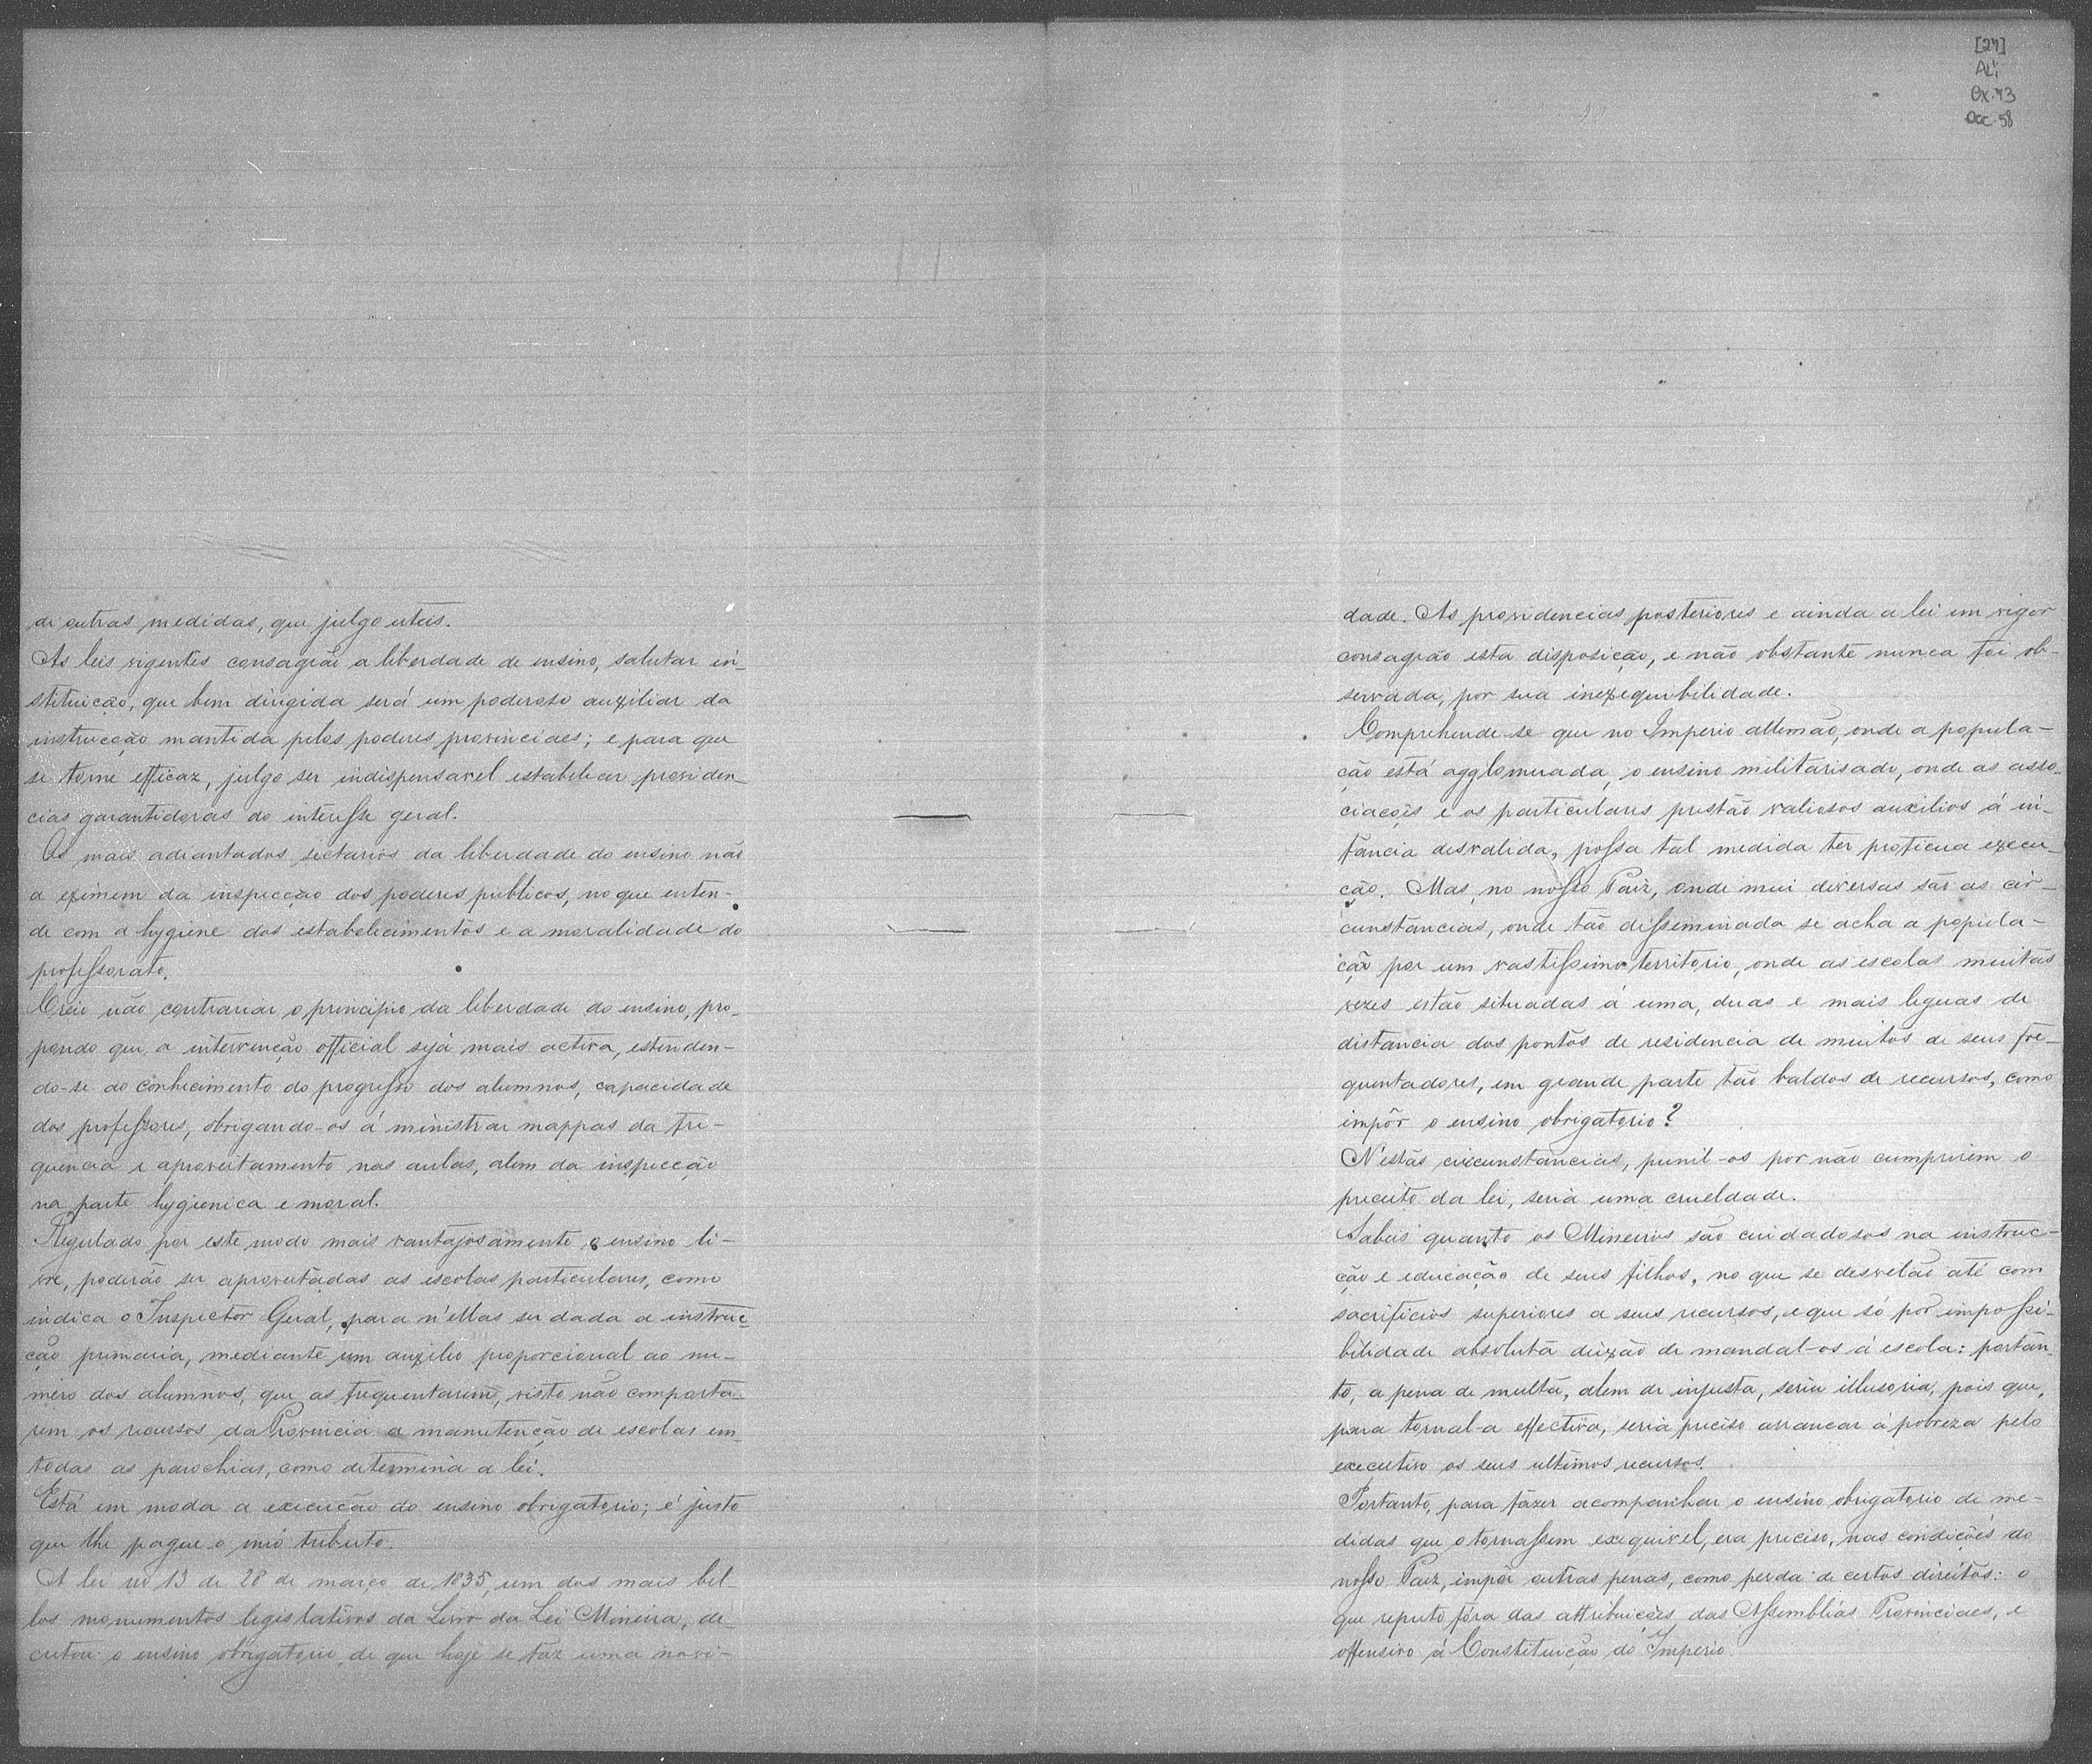 de outras medidas, que julgo uteis.
As leis vigentes consagrão a liberdade de ensino, salutar in-
stituição, que bem dirigida será um poderoso auxiliar da
instrucção mantida pelos poderes provinciaes; e para que
se torne efficaz, julgo ser indispensavel estabelecer providen-
cias garantidoras do interesse geral.
Os mais adiantados sectarios da liberdade do ensino não
a eximem da inspecção dos poderes publicos, no que enten-
de com a hygiene dos estabelecimentos e a moralidade do
professorato.
Creio não contrariar o principio da liberdade do ensino, pro-
pondo que a intervenção official seja mais activa, estenden-
do-se ao conhecimento do progresso dos alumnos, capacidade
dos professores, obrigando-os á ministrar mappas da fre-
quencia e aproveitamento nas aulas, alem da inspecção
na parte hygienica e moral.
Regulado por este modo mais vantajosamente o ensino li-
vre, poderão ser aproveitadas as escolas particulares, como
indica o Inspector Geral, para n'ellas ser dada a instruc-
ção primaria, mediante um auxilio proporcional ao nu-
mero dos alumnos, que as frequentarem, visto não comporta-
rem os recursos da Provincia a manutenção de escolas em
todas as parochias, como determina a lei.
Está em moda a execução do ensino obrigatorio; é justo
que lhe pague o meo tributo.
A lei nº 13 de 28 de março de 1835, um dos mais bel-
los monumentos legislativos da Livro da Lei Mineira, de-
cretou o ensino obrigatorio, de que hoje se faz uma novi-
[27]
ALI
Cx. 73
Doc. 58
dade. As providencias posteriores e ainda a lei em vigor
consagrão esta disposição, e não obstante nunca foi ob-
servada, por sua inexequibilidade.
Comprehende-se que no Imperio allemão, onde a popula-
ção está agglomerada, o ensino militarisado, onde as asso-
ciações e os particulares prestão valiosos auxilios á in-
fancia desvalida, possa tal medida ter proficua execu-
ção. Mas, no nosso Paiz, onde mui diversas são as cir-
cunstancias, onde tão disseminada se acha a popula-
ção por um vastissimo territorio, onde as escolas muitas
vezes estão situadas á uma, duas e mais leguas de
distancia dos pontos de residencia de muitos de seus fre-
quentadores, em grande parte tão baldos de recursos, como
impôr o ensino obrigatorio?
N'estas circunstancias, punil-os por não cumprirem o
preceito da lei, seria uma crueldade.
Sabeis quanto os Mineiros são cuidadosos na instruc-
ção e educação de seus filhos, no que se desvelão até com
sacrificios superiores a seus recursos, e que só por impossi-
bilidade absoluta deixão de mandal-os á escola: portan-
to, a pena de multa, alem de injusta, seria illusoria, pois que,
para tornal-a effectiva, seria preciso arrancar á pobreza pelo
executivo os seus ultimos recursos.
Portanto, para fazer acompanhar o ensino obrigatorio de me-
didas que o tornassem exequivel, era preciso, nas condições do
nosso Paiz, impôr outras penas, como perda de certos direitos: o
que reputo fóra das attribuições das Assembléas Provinciaes, e
offensivo á Constituição do Imperio.